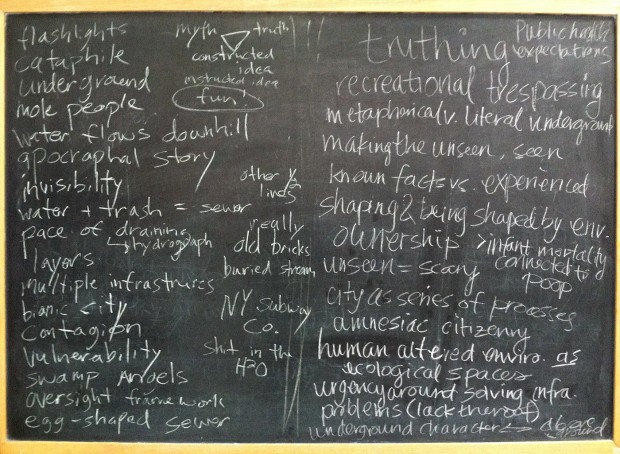 flashlights
cataphile
underground
mole people
water flows downhill
apocraphal story
invisibility
water + trash = sewer
pace of draining
↳ hydrograph
layers
multiple infrastrures
bionic city
contagion
vulnerability
swamp
oversight frame work
egg-shaped sewer
myth
truth
constructed
idea
instructed idea
fun!
other 1/2
lives
really
old bricks
buried stream
NY Subway
Co.
shit in the
H2O
!!
truthing
Public health
expectations
recreational trespassing
metaphorical v. literal underground
making the unseen, seen
known facts vs. experienced
shaping & being shaped by env.
ownership
> infant mortality
connected to
poop
unseen = scary
city as series of processes
amnesiac citizenry
human altered enviro. as
ecological spaces
urgency around solving infra.
problems (lack thereof)
underground character <-> above
ground